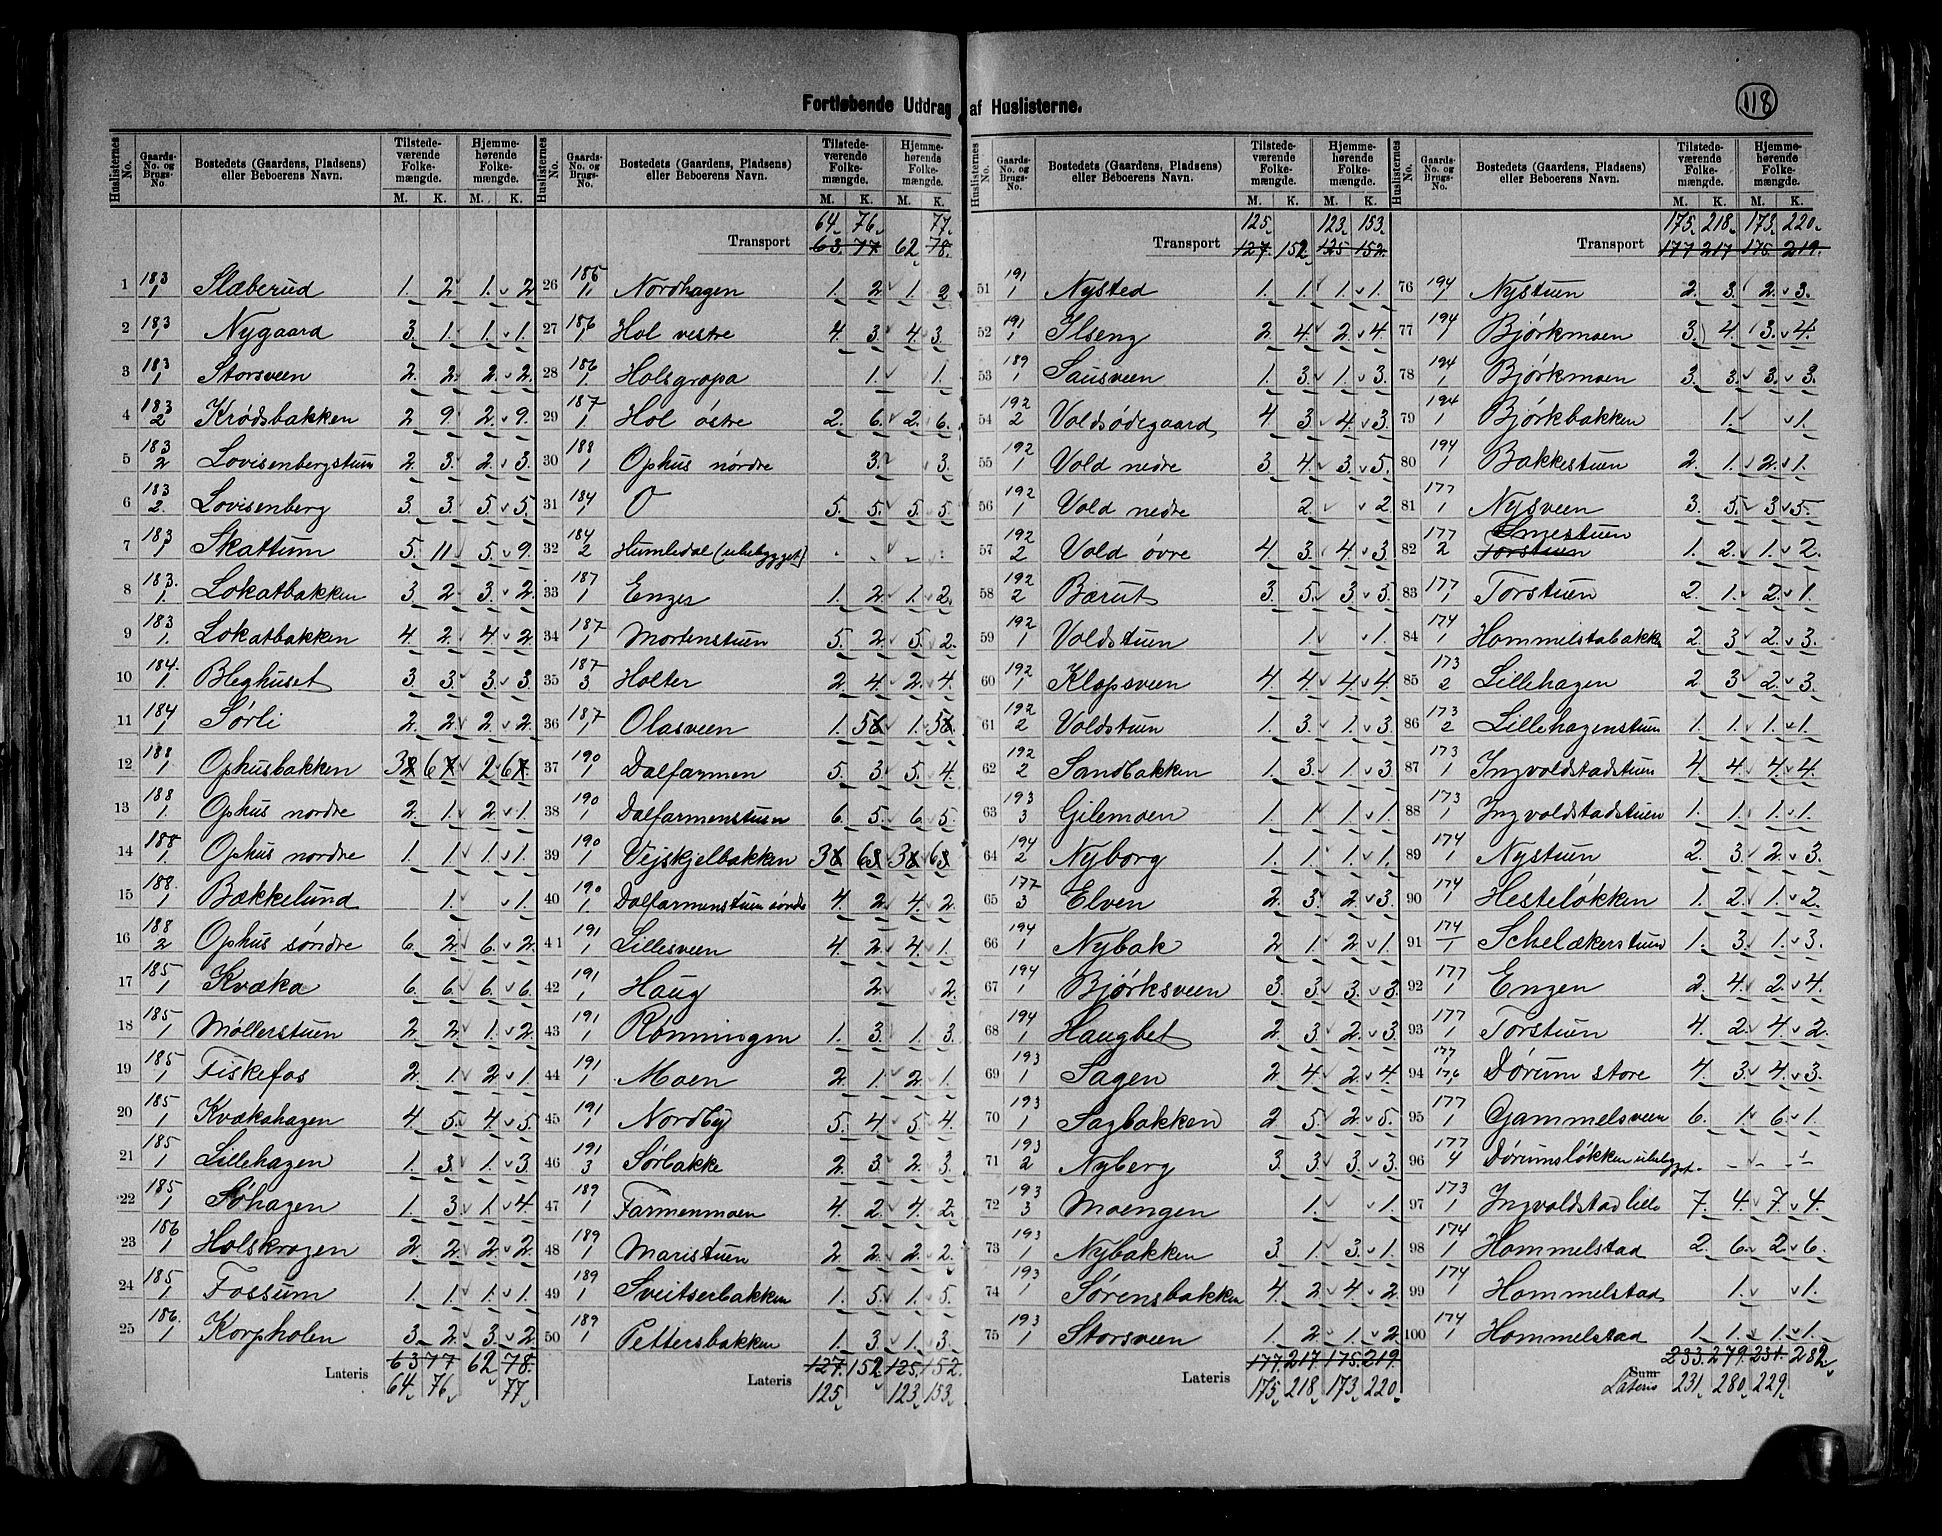 118
Fortløbende Uddrag af Huslisterne.
Huslisternes No. Gaards-No. og Brugs-No. Bostedets (Gaardens, Pladsens) eller Beboerens Navn. Tilstedeværende Folkemængde. M. K. Hjemmehørende Folkemængde. M. K.
1 183/1 Slæberud 1. 2. 1. 2.
2 183/1 Nygaard 3. 1. 1. 1.
3 183/1 Storsveen 2. 2. 2. 2.
4 183/2 Krødsbakken 2. 9. 2. 9.
5 183/2 Lovisenbergstuen 2. 3. 2. 3.
6 183/2 Lovisenberg 3. 3. 5. 5.
7 183/1 Skattum 5. 11. 5. 9.
8 183/1 Lokatbakken 3. 2. 3. 2.
9 183/1 Lokatbakken 4. 2. 4. 2.
10 184/1 Bleghuset 3. 3. 3. 3.
11 184/1 Sørli 2. 2. 2. 2.
12 188/1 Ophusbakken 3 6 2 6
13 188/1 Ophus nordre 2. 1. 2. 1.
14 188/1 Ophus nordre 1. 1. 1. 1.
15 188/1 Bækkelund 1. 1.
16 188/2 Ophus søndre 6. 2. 6. 2.
17 185/1 Kvæka 6. 6. 6. 6.
18 185/1 Møllerstuen 2. 2. 1. 2.
19 185/1 Fiskefos 2. 1. 2. 1.
20 185/1 Kvækahagen 4. 5. 4. 5.
21 185/1 Lillehagen 1. 3. 1. 3.
22 185/1 Søhagen 1. 3. 1. 4.
23 186/1 Holskrogen 2. 2. 2. 2.
24 185/1 Fossum 1. 1. 1. 1.
25 186/1 Korpholen 3. 2. 3. 2.
Lateris 63 77 62 78.
64. 76. 77.
Huslisternes No. Gaards-No. og Brugs-No. Bostedets (Gaardens, Pladsens) eller Beboerens Navn. Tilstedeværende Folkemængde. M. K. Hjemmehørende Folkemængde. M. K.
64. 76. 77.
Transport 63. 77. 62. 78.
26 185/11 Nordhagen 1. 2. 1. 2.
27 186/1 Hol vestre 4. 3. 4. 3.
28 186/1 Holsgropa 1. 1.
29 187/1 Hol østre 2. 6. 2. 6.
30 188/1 Ophus nordre 3. 3.
31 184/1 O 5. 5. 5. 5.
32 184/2 Humledal (ubebygget)
33 187/1 Enger 1. 2. 1. 2.
34 187/1 Mortenstuen 5. 2. 5. 2.
35 187/3 Holter 2. 4. 2. 4.
36 187/1 Olasveen 1. 5 1. 5
37 190/1 Dalfarmen 5. 3. 5. 4.
38 190/1 Dalfarmenstuen 6. 5. 6. 5.
39 190/1 Vejskjelbakken 3 6 3 6
40 190/1 Dalfarmenstuen søndr 4. 2. 4. 2.
41 191/1 Lillesveen 4. 2. 4. 1.
42 191/1 Haug 2. 2.
43 191/1 Rønningen 1. 3. 1. 3.
44 191/1 Moen 2. 1. 2. 1.
45 191/1 Nordby 5. 4. 5. 4.
46 191/3 Sørbakke 2. 3. 2. 3.
47 189/1 Farmenmoen 4. 2. 4. 2.
48 189/1 Maristuen 2. 2. 2. 2.
49 189/1 Sveitserbakken 1. 5. 1. 5.
50 189/1 Pettersbakken 1. 3. 1. 3.
Lateris 127. 152. 125. 152.
125. 123. 153.
Huslisternes No. Gaards-No. og Brugs-No. Bostedets (Gaardens, Pladsens) eller Beboerens Navn. Tilstedeværende Folkemængde. M. K. Hjemmehørende Folkemængde. M. K.
125. 123. 153.
Transport 127. 152. 125 152.
51 191/1 Nysted 1. 1. 1. 1.
52 191/1 Ilseng 2. 4. 2. 4.
53 189/1 Sausveen 1. 3. 1. 3.
54 192/2 Voldsødegaard 4. 3. 4. 3.
55 192/1 Vold nedre 3. 4. 3. 5.
56 192/1 Vold nedre 2. 2.
57 192/2 Vold øvre 4. 3. 4. 3.
58 192/2 Bærut 3. 5. 3. 5.
59 192/1 Voldstuen 1. 1.
60 192/1 Klopsveen 4. 4. 4. 4.
61 192/2 Voldstuen 1. 3. 1. 3.
62 192/2 Sandbakken 1. 3. 1. 3.
63 193/3 Gilemoen 1. 1. 1. 1.
64 194/2 Nyborg 1. 1. 1. 1.
65 177/3 Elven 2. 3. 2. 3.
66 194/1 Nybak 2. 1. 2. 1.
67 194/1 Bjørksveen 3. 3. 3. 3.
68 194/1 Haugbet 2. 3. 2. 3.
69 193/1 Sagen 2. 4. 2. 4.
70 193/1 Sagbakken 2. 5. 2. 5.
71 193/2 Nyberg 3. 3. 3. 3.
72 193/3 Moengen 1. 1.
73 193/1 Nybakken 3. 1. 3. 1.
74 193/1 Sørensbakken 4. 2. 4. 2.
75 193/1 Storsveen 1. 2. 1. 2.
Lateris 177. 217. 175. 219.
175. 218. 173. 220.
Huslisternes No. Gaards-No. og Brugs-No. Bostedets (Gaardens, Pladsens) eller Beboerens Navn. Tilstedeværende Folkemængde. M. K. Hjemmehørende Folkemængde. M. K.
175. 218. 173. 220.
Transport 177 217 175. 219.
76 194/1 Nystuen 2. 3. 2. 3.
77 194/1 Bjørkmoen 3. 4. 3. 4.
78 194/1 Bjørkmoen 3. 3. 3. 3.
79 194/1 Bjørkbakken 1. 1.
80 194/1 Bakkestuen 2. 1. 2. 1.
81 177/1 Nysveen 3. 5. 3. 5.
Smestuen
82 177/2 Torstuen 1. 2. 1. 2.
83 177/1 Torstuen 2. 1. 2. 1.
84 174/1 Hommelstabakk 2. 3. 2. 3.
85 173/2 Lillehagen 2. 3. 2. 3.
86 173/2 Lillehagenstuen 1. 1. 1. 1.
87 173/1 Ingvoldstadstuen 4. 4. 4. 4.
88 173/1 Ingvoldstadstuen 1. 1. 1. 1.
89 174/1 Nystuen 2. 3. 2. 3.
90 174/1 Hesteløkken 1. 2. 1. 2.
91 174/1 Schelækerstuen 1. 3. 1. 3.
92 177/1 Engen 2. 4. 2. 4.
93 177/1 Torstuen 4. 2. 4. 2.
94 177/1 176 Dørum store 4. 3. 4. 3.
95 177/1 Gammelsveen 6. 1. 6. 1.
96 177/4 Dørumsløkken ubebygget.
97 173/1 Ingvoldstad lille 7. 4. 7. 4.
98 174/1 Hommelstad 2. 6. 2. 6.
99 174/1 Hommelstad 1. 1.
100 174/1 Hommelstad 1. 1. 1. 1.
233. 279. 231. 282.
Sum
Lateris 231. 280. 229.